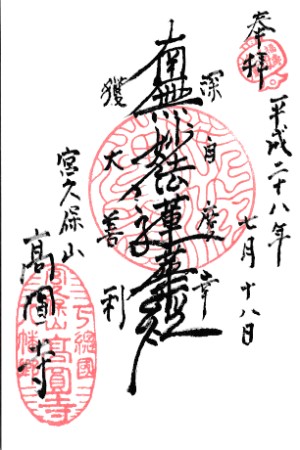 奉拝
平成二十八年
七月十八日
深自慶幸
南無妙法蓮華経
獲大善利
宮久保山
高圓寺
下總國
高圓寺